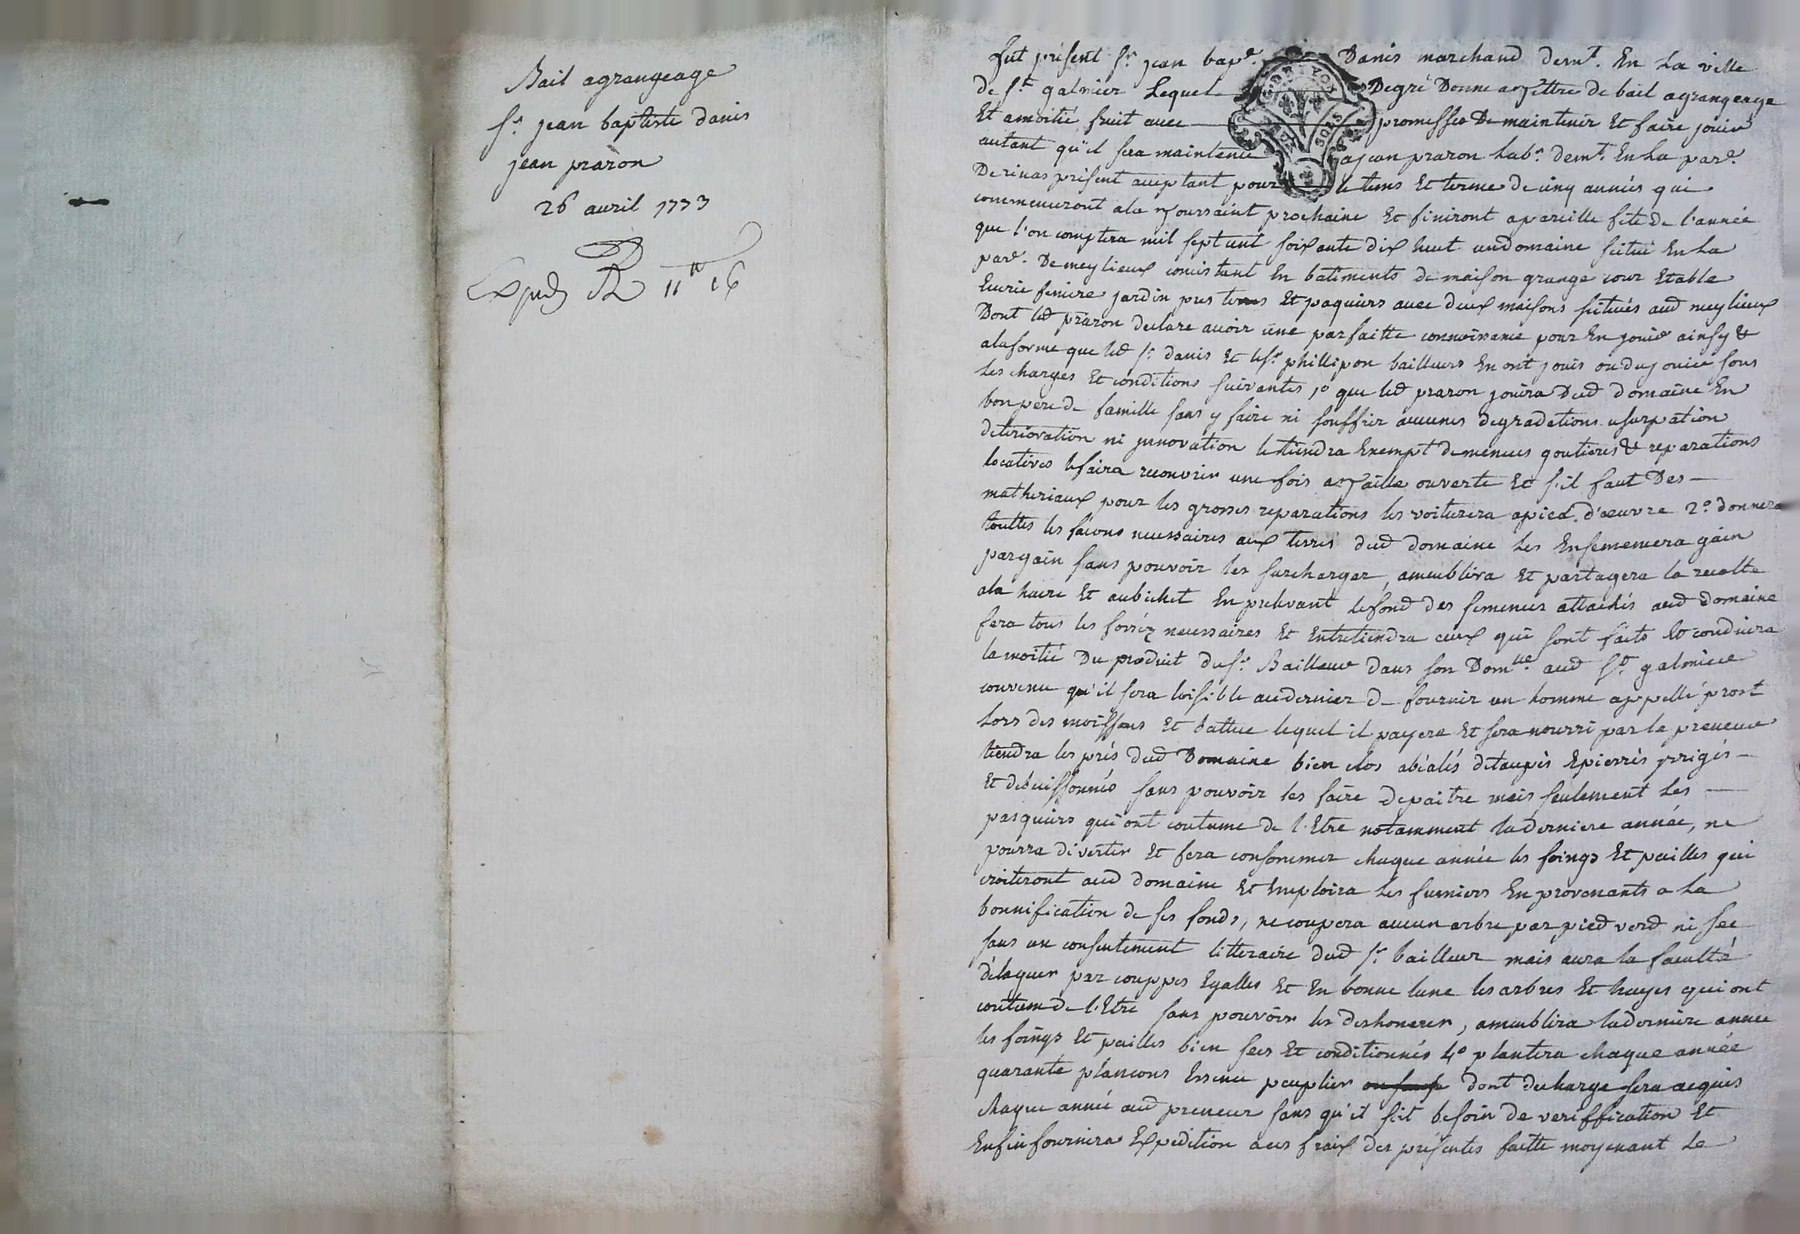 Bail agrangeage
Sr. jean baptiste danis
jean prazon
26 avril 1773
Exped 11 16
fut présent Sr. jean bapte. Danis marchand demt. En La ville
de St galmier Lequel Degré Donne a tittre de bail agrangeage
Et amoitié fruit avec promesse De maintenir Et faire jouir
autant qu'il sera maintenu a jean prazon Labr. demt. En La parse.
De rivas présent acceptant pour le tems Et terme de cinq années qui
commenceront ala Toussaint prochaine Et finiront a pareille fete de l'année
que l'on comptera mil sept cent soixante dix huit un domaine scitué En La
parse. De meylieux consistant En batiments de maison grange cour Etable
Ecurie feniere jardin prés terres Et paquiers avec deux maisons scituées aud meylieux
Dont led prazon declare avoir une parfaitte connoissance pour En jouir ainsy &
alaforme que led Sr. danis Et le Sr phillipon bailleurs En ont jouis ou du jouir sous
Les charges Et conditions suivantes 1o que led prazon jouira dud domaine En
bon pere de famille sans y faire ni souffrir aucunes degradations usurpation
déterioration ni innovation le tiendra Exempt de menues goutieres & reparations
locatives le faira recouvrir une fois a Taille ouverte Et s'il faut Des
matheriaux pour les grosses reparations les voiturera a pied d'oeuvre 2o donnera
touttes les façons necessaires aux terres dud domaine Les Ensemencera gain
par gain sans pouvoir les surcharger, ameublira Et partagera la recolte
ala haire Et au bichet En prelevant le fond des semences attachés aud domaine
fera tous les fossez necessaires Et Entretiendra ceux qui sont faits Et conduira
la moitié Du produit du Sr. Bailleur dans son Domlle. aud St galmier
convenu qu'il sera loisible au dernier de fournir un homme appellé
Lors des moissons Et battue lequel il payera Et sera nourri par le preneur
tiendra les prés dud Domaine bien clos abéalés détaupés Epierrés yrrigés
Et débuissonnés sans pouvoir les faire dépaitre mais seulement Les
pasquiers qui ont coutume de l'Etre notamment la derniere année, ne
pourra divertir Et fera consommer chaque année les foings Et pailles qui
croitront aud domaine Et Emploira Les fumiers En provenants a La
bonnification de ses fonds, ne coupera aucun arbre par pied verd ni sec
sans un consentement litteraire dud Sr. bailleur mais aura la faculté
d'élaguer par couppes Egalles Et En bonne lune les arbres Et hayes qui ont
coutume de l'Etre sans pouvoir les deshonorer, ameublira la derniere année
les foings Et pailles bien secs Et conditionnés 4o plantera chaque année
quarante plancons peuplier dont decharge sera acquis
chaque année aud preneur sans qu'il soit besoin de veriffication Et
Enfin fournira Expedition a ses fraix des présentes faitte moyenant Le